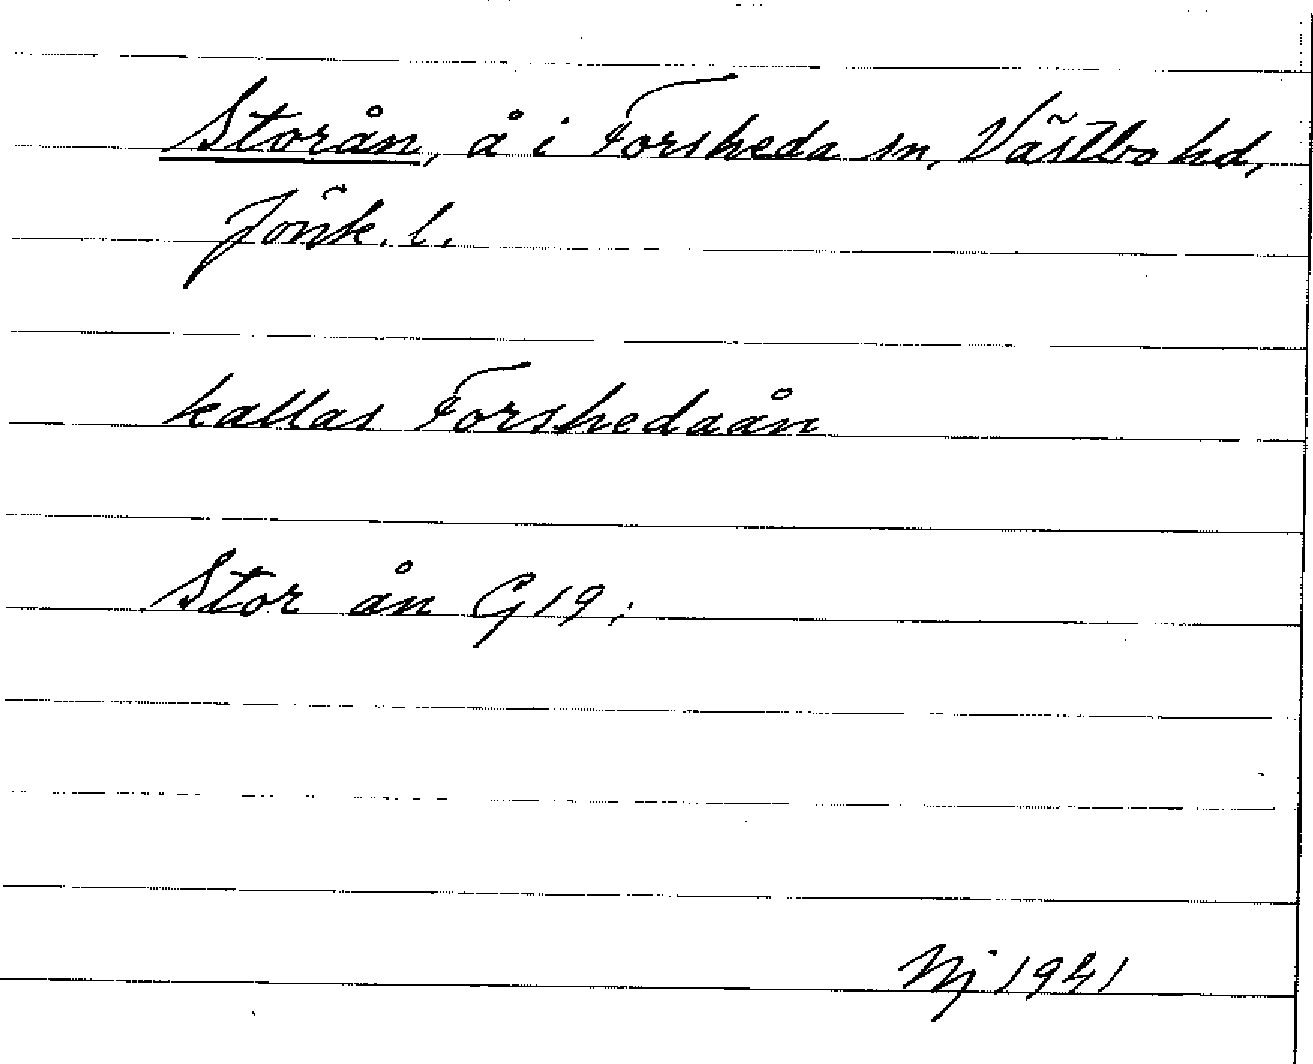 Storån, å i Forsheda sn, Västbo hd,
Jönk. l.
kallas Forshedaån
Stor ån G19;
Nj 1941